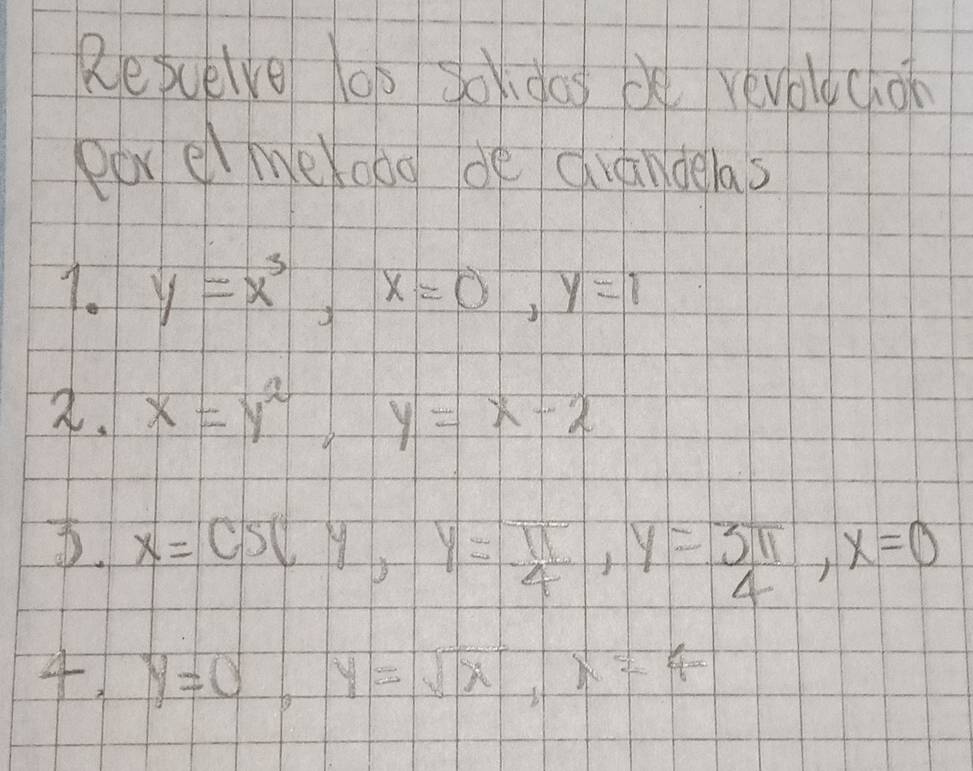 Resuelve los solidos de revolución
por el metodo de arandelas
1. y = x³, x = 0, y = 1
2. x = y², y = x - 2
3. x = csc y, y = π/4, y = 3π/4, x = 0
4. y = 0, y = √x, x = 4